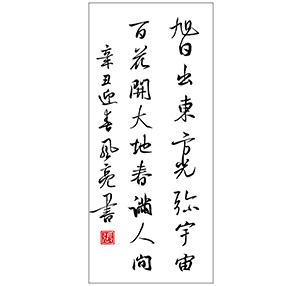 旭日出東方光弥宇宙
百花開大地春滿人间
辛丑迎春风亮書